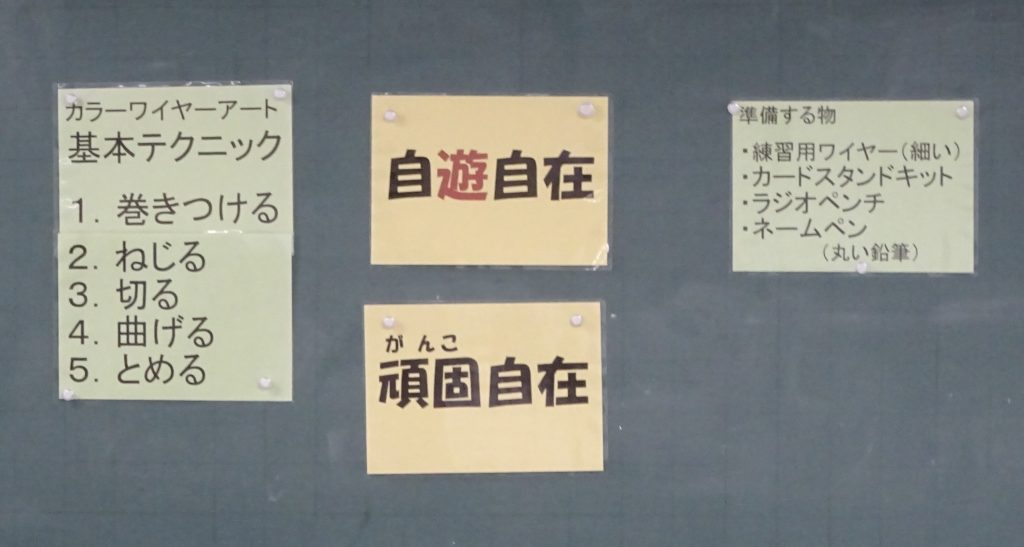 カラーワイヤーアート
基本テクニック
1．巻きつける
2．ねじる
3．切る
4．曲げる
5．とめる
自遊自在
がんこ
頑固自在
準備する物
・練習用ワイヤー（細い）
・カードスタンドキット
・ラジオペンチ
・ネームペン
（丸い鉛筆）